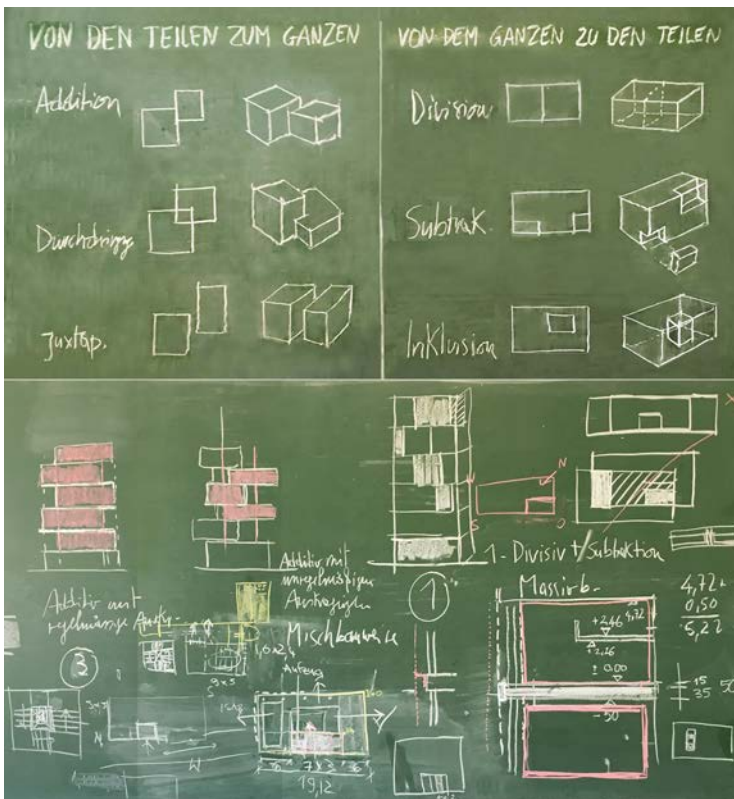 VON DEN TEILEN ZUM GANZEN
Addition
Durchdringg
Juxtap.
VON DEM GANZEN ZU DEN TEILEN
Division
Subtrak.
Inklusion
N
W
S
O
X
1 - Divisiv + / Subtraktion
Additiv mit
unregelmässigen
Auskragungen
Additiv mit
regelmässige
Mischbauweise
3
Aufzug
19,12
1
Massivb.
+2.46
4,72
+2,26
± 0.00
- 50
4,72 +
0,50
5,22
15
35
50